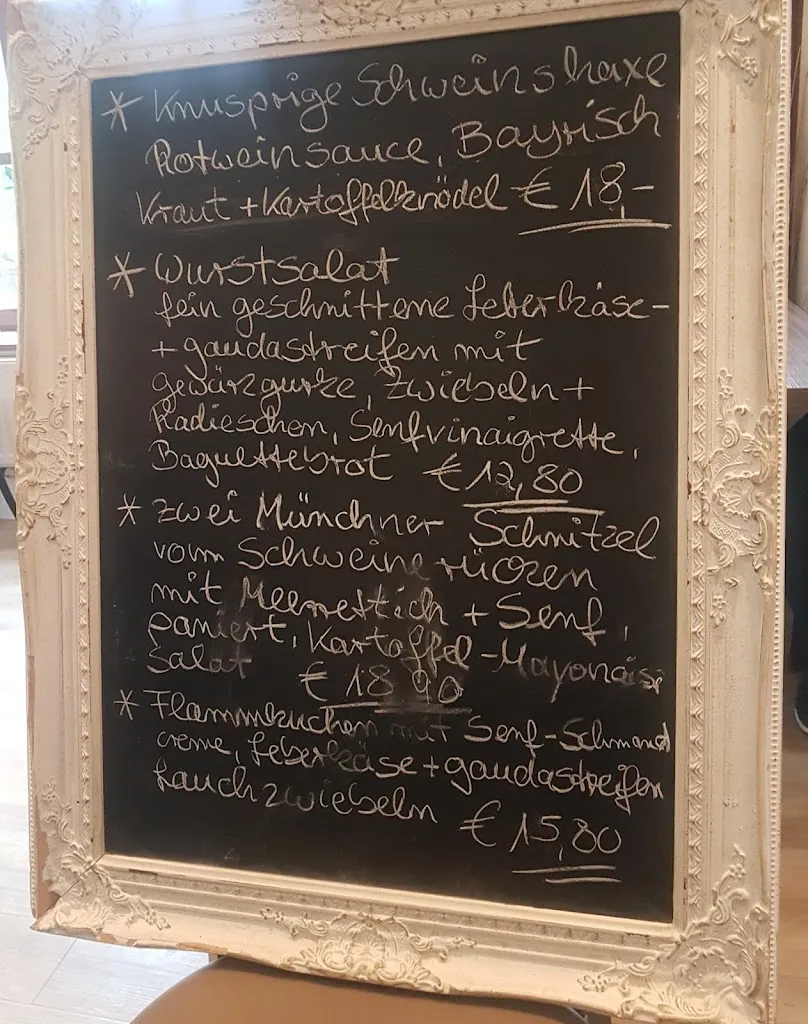 * Knusprige Schweinshaxe
Rotweinsauce, Bayrisch
Kraut + Kartoffelknödel € 18,-
* Wurstsalat
fein geschnittene Leberkäse-
+ gaudastreifen mit
gewürzgurke, Zwiebeln +
Radieschen, Senfvinaigrette,
Baguettebrot € 12,80
* Zwei Münchner Schnitzel
vom Schweinerücken
mit Meerrettich + Senf,
paniert, Kartoffel-Mayonaise
Salat
€ 18 90
* Flammkuchen mit Senf-Schmand
creme, Leberkäse + gaudastreifen
Lauchzwiebeln € 15,80